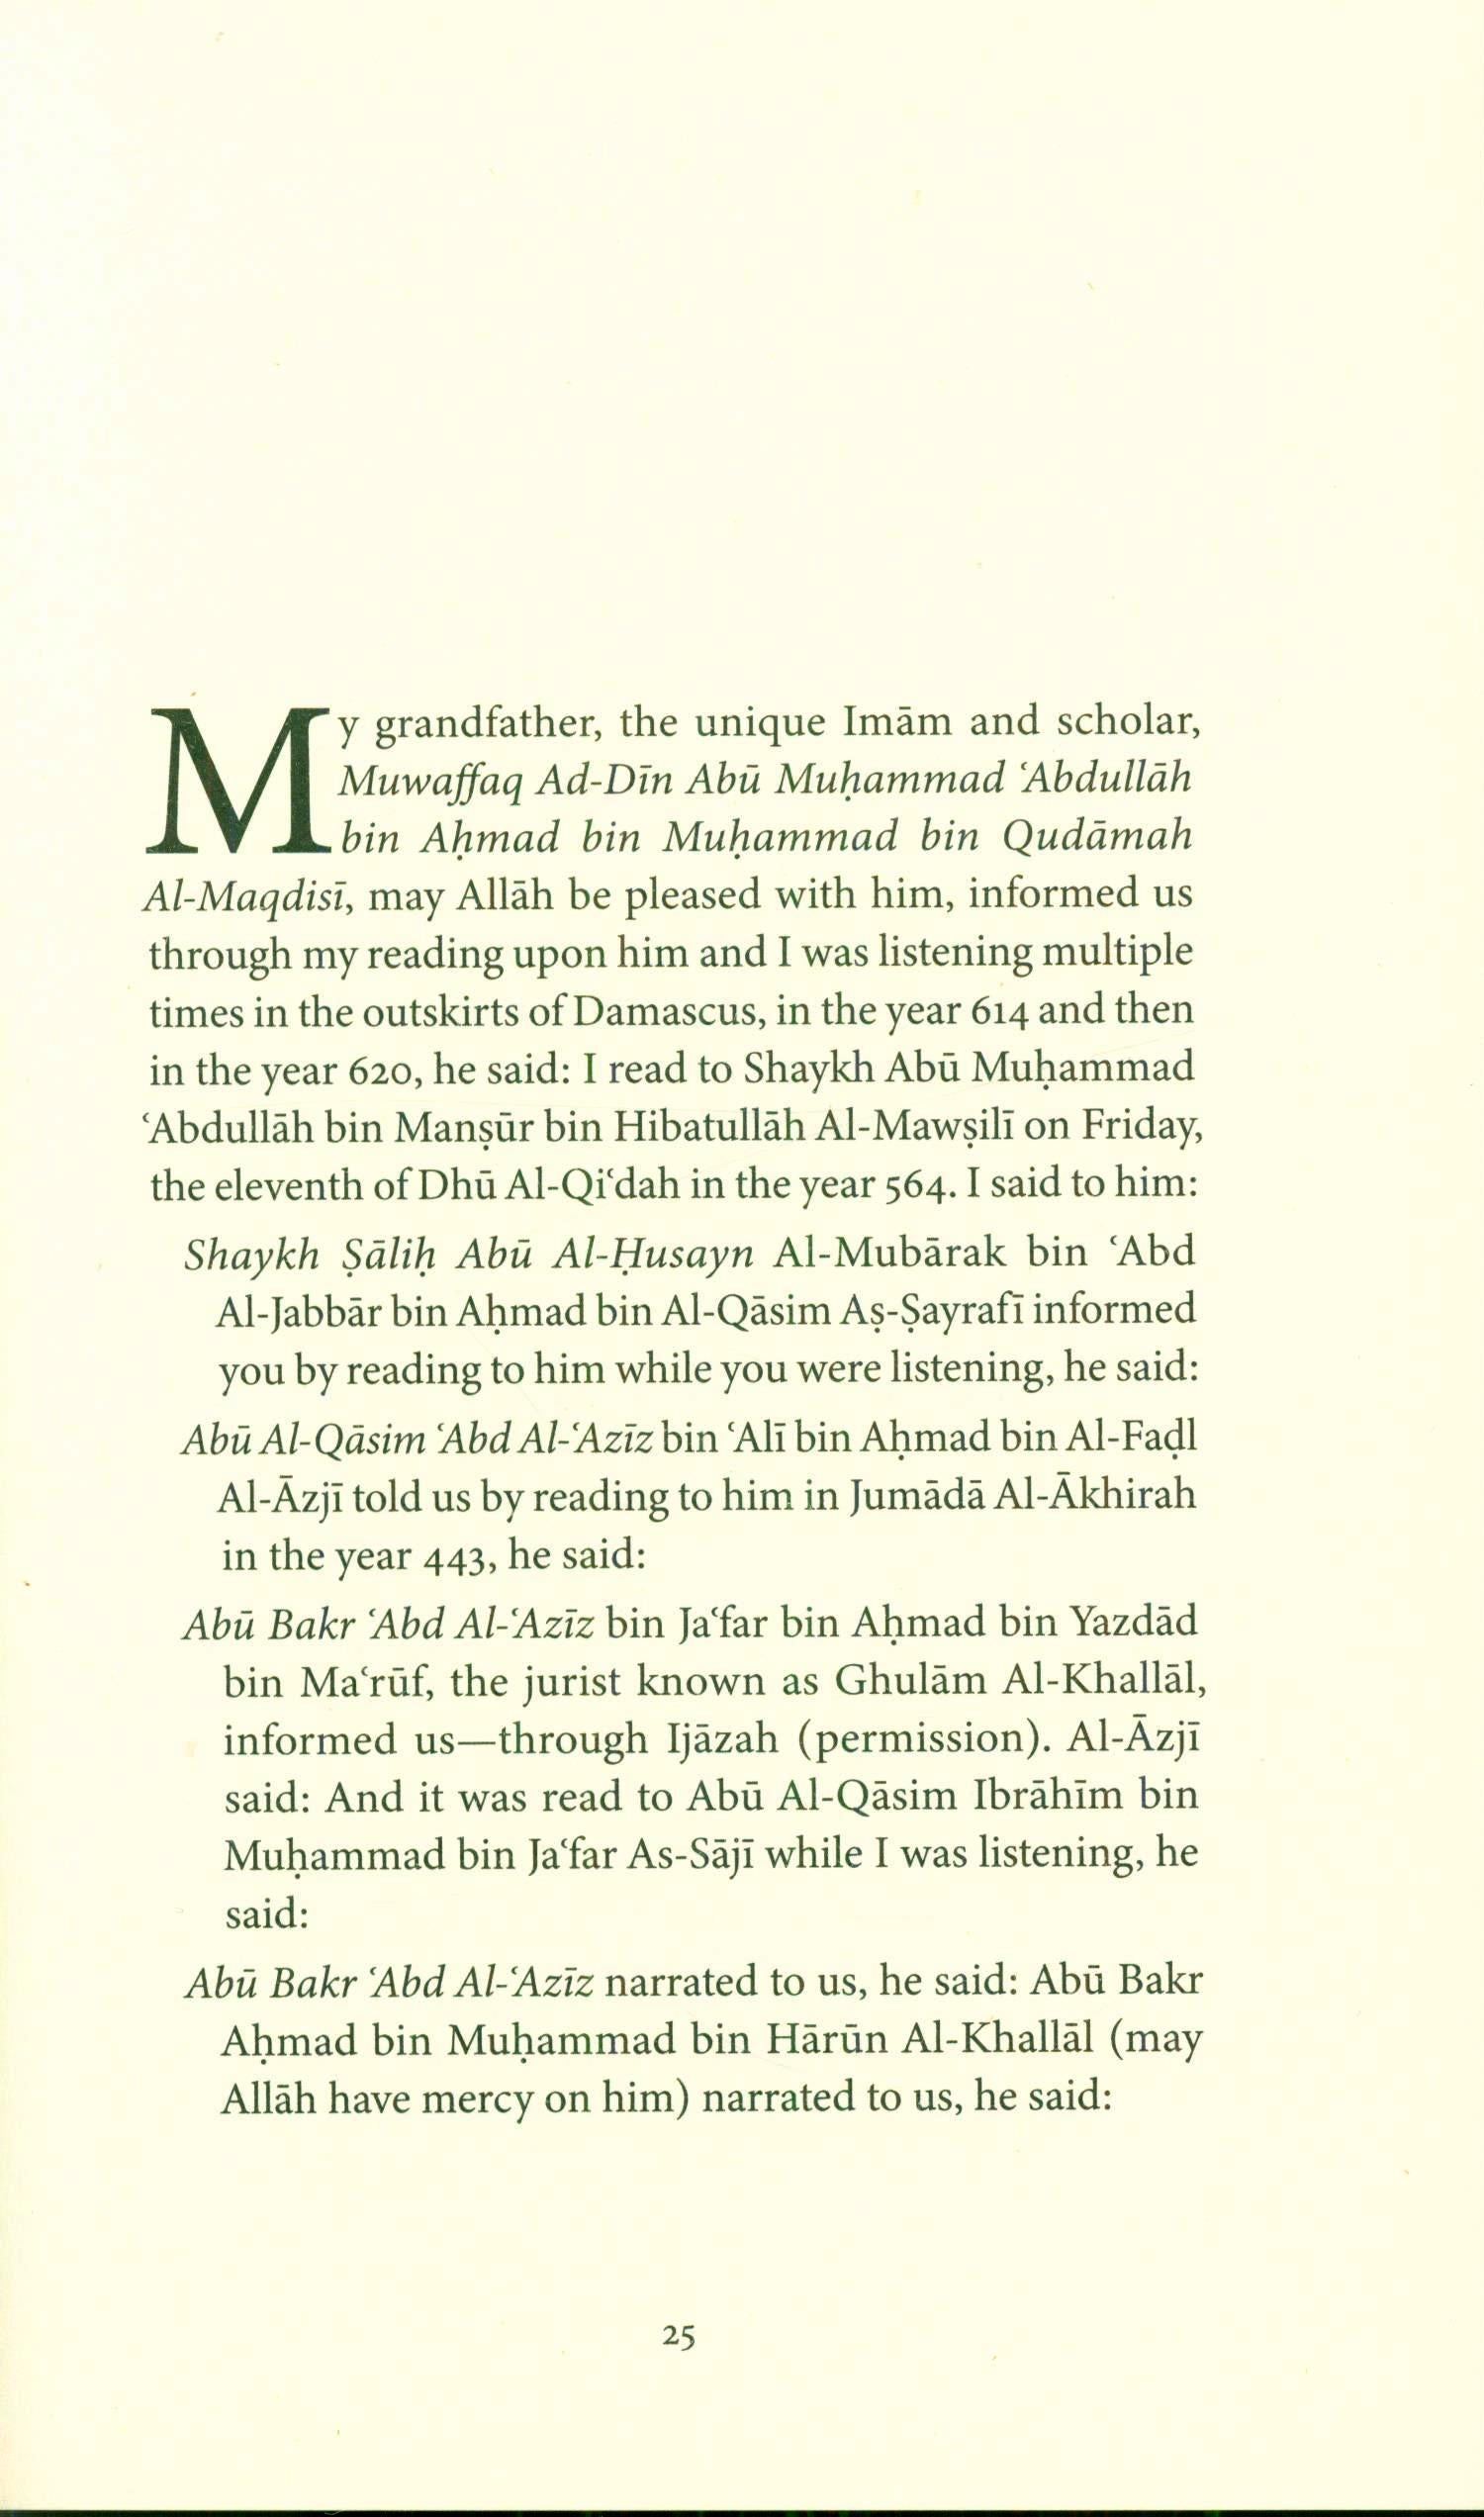 My grandfather, the unique Imām and scholar,
Muwaffaq Ad-Dīn Abū Muḥammad ‘Abdullāh
bin Aḥmad bin Muḥammad bin Qudāmah
Al-Maqdisī, may Allāh be pleased with him, informed us
through my reading upon him and I was listening multiple
times in the outskirts of Damascus, in the year 614 and then
in the year 620, he said: I read to Shaykh Abū Muḥammad
‘Abdullāh bin Manṣūr bin Hibatullāh Al-Mawṣilī on Friday,
the eleventh of Dhū Al-Qi‘dah in the year 564. I said to him:
Shaykh Ṣāliḥ Abū Al-Ḥusayn Al-Mubārak bin ‘Abd
Al-Jabbār bin Aḥmad bin Al-Qāsim Aṣ-Ṣayrafī informed
you by reading to him while you were listening, he said:
Abū Al-Qāsim ‘Abd Al-‘Azīz bin ‘Alī bin Aḥmad bin Al-Faḍl
Al-Āzjī told us by reading to him in Jumādā Al-Ākhirah
in the year 443, he said:
Abū Bakr ‘Abd Al-‘Azīz bin Ja‘far bin Aḥmad bin Yazdād
bin Ma‘rūf, the jurist known as Ghulām Al-Khallāl,
informed us—through Ijāzah (permission). Al-Āzjī
said: And it was read to Abū Al-Qāsim Ibrāhīm bin
Muḥammad bin Ja‘far As-Sājī while I was listening, he
said:
Abū Bakr ‘Abd Al-‘Azīz narrated to us, he said: Abū Bakr
Aḥmad bin Muḥammad bin Hārūn Al-Khallāl (may
Allāh have mercy on him) narrated to us, he said:
25